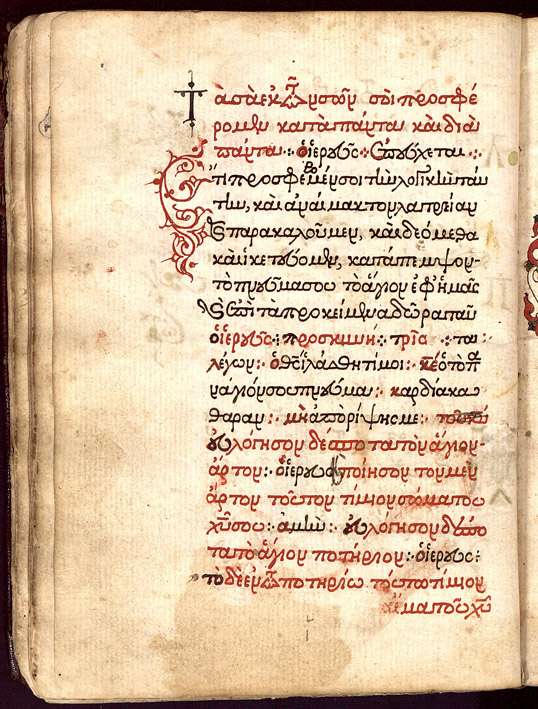 Τὰ σὰ ἐκ τῶν σῶν σοὶ προσφέ
ρομεν κατὰ πάντα καὶ διὰ
πάντα :· ὁ ἱερεὺς· ἐπεύχεται :·
Ἔτι προσφέρομέν σοι τὴν λογικὴν ταύ
την, καὶ ἀναίμακτον λατρείαν
καὶ παρακαλοῦμεν, καὶ δεόμεθα
καὶ ἱκετεύομεν, κατάπεμψον
τὸ πνεῦμα σου τὸ ἅγιον ἐφ' ἡμᾶς
καὶ ἐπὶ τὰ προκείμενα δῶρα ταῦ
ὁ ἱερεὺς : προσκυνῆ · τρὶς :· τα
λέγων :· ὁ θς ἱλάσθητί μοι :· κε ὁ τὸ πα
νάγιόν σου πνεῦμα :· καρδίαν κα
θαραν :· μὴ ἀπορίψης με :·
εὐλόγησον δέσποτα τὸν ἅγιον
ἄρτον :· ὁ ἱερεὺς ποίησον τὸν μὲν
ἄρτον τοῦτον τίμιον σῶμα τοῦ
χυ σου :· ἀμὴν :· εὐλόγησον δέσπο
τα τὸ ἅγιον ποτήριον :· ὁ ἱερεὺς :
τὸ δὲ ἐν τῶ ποτηρίω τούτω τίμιον
αἷμα τοῦ χυ